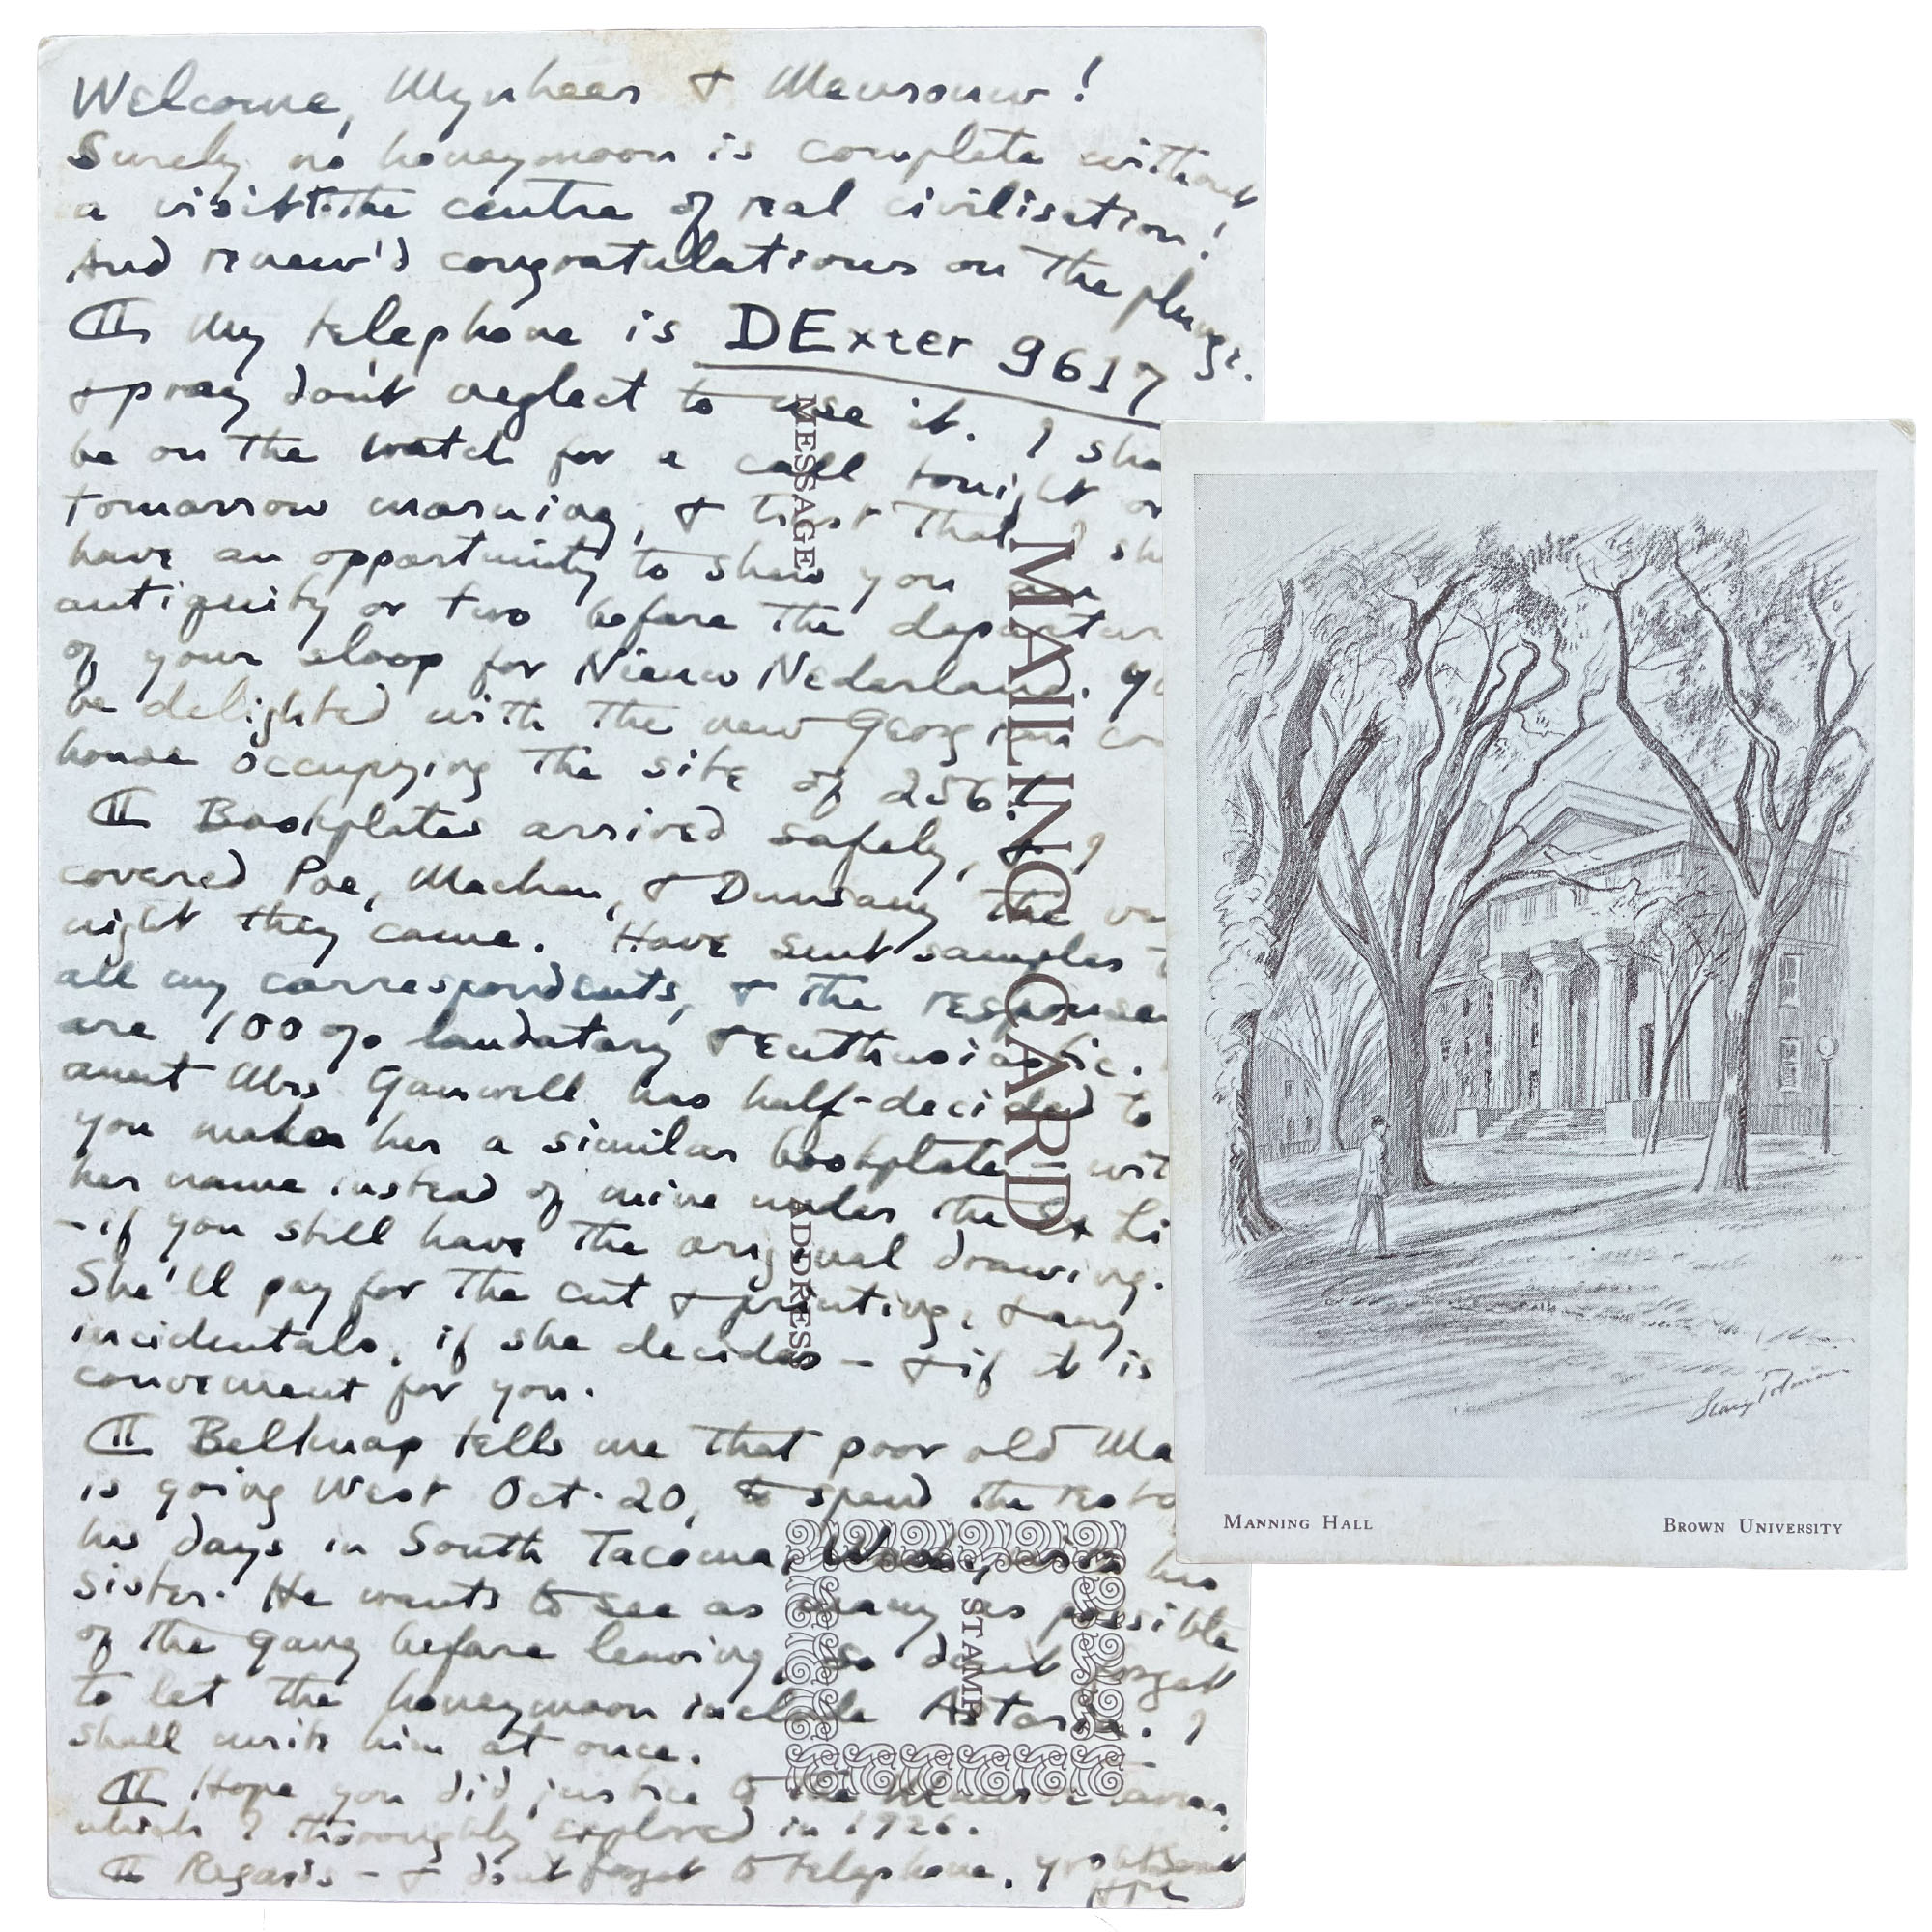 Welcome, Mynheer & Mevrouw!
Surely no honeymoon is complete without
a visit to the centre of real civilisation!
And renew'd congratulations on the plunge.
¶ My telephone is DExter 9617
& pray don't neglect to use it. I sha
be on the watch for a call tonight or
tomorrow morning, & trust that I sh
have an opportunity to show you an
antiquity or two before the departur
of your sloop for Nieuw Nederland. Yo
be delighted with the new Georgian co
house occupying the site of 256!
¶ Bookplates arrived safely, & I
covered Poe, Machen, & Dunsany the ve
night they came. Have sent samples t
all my correspondents, & the response
are 100% laudatory & enthusiastic.
aunt Mrs Gamwell has half-decided to
you make her a similar bookplate - wit
her name instead of mine under the Ex Li
- if you still have the original drawing.
She'll pay for the cut & printing, & any
incidentals, if she decides - & if it is
convenient for you.
¶ Belknap tells me that poor old Ma
is going West Oct. 20, to spend the rest o
his days in South Tacoma, Wash., with his
sister. He wants to see as many as possible
of the gang before leaving, so don't forget
to let the honeymoon include Astoria. I
shall write him at once.
¶ Hope you did justice to the
which I thoroughly explored in 1926.
¶ Regards - & don't forget to telephone. Yr obt Servt
HPL
MESSAGE
MAILING CARD
ADDRESS
STAMP
Stacy Tolman
MANNING HALL
BROWN UNIVERSITY